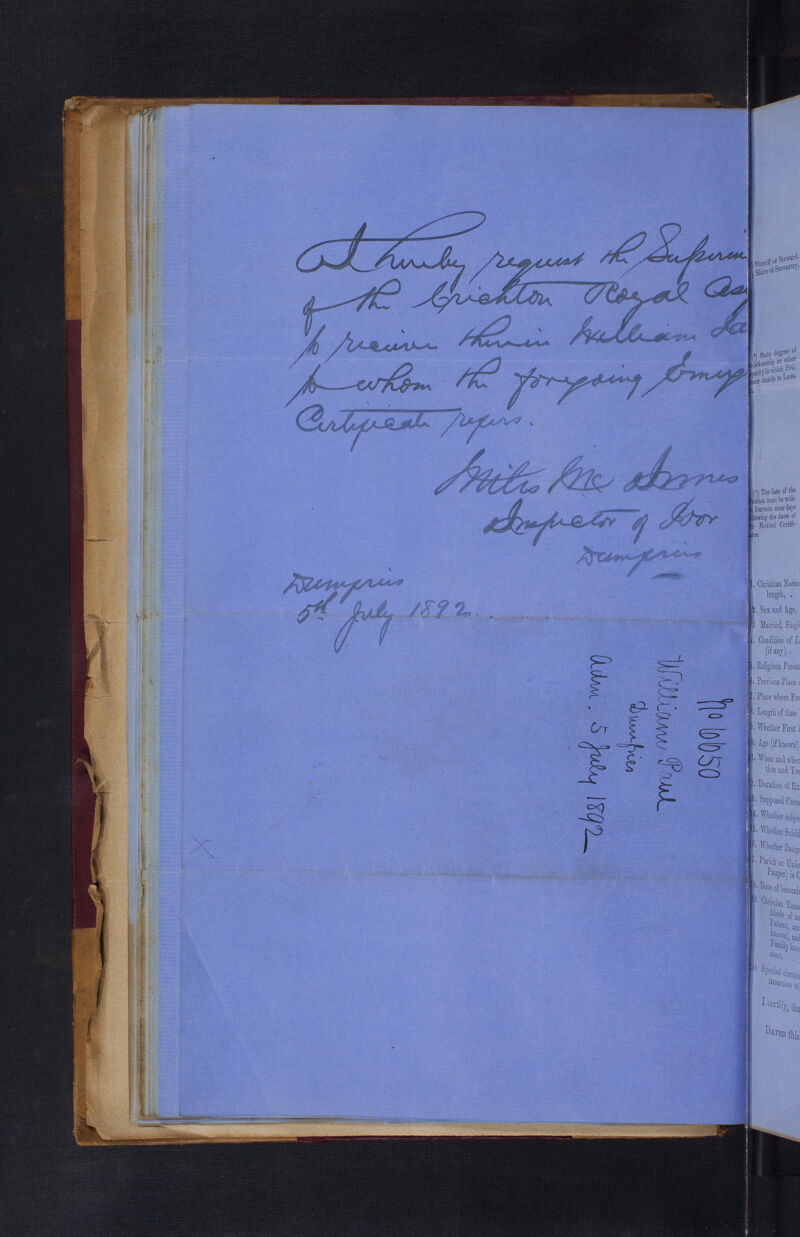 I hereby request the Superin
of the Crichton Royal Asy
to receive therein William
to whom the foregoing Emerg
Certificate refers.
Miles Mc Innes
Inspector of Poor
Dumfries
Dumfries
5th July 1892.
No 6050
William Paul
Dumfries
Adm. 5 July 1892
Sheriff or Steward.
Shire or Stewartry.
State degree of
relationship or other
capacity in which Peti-
stands to Luna-
The date of the
must be with-
fourteen clear days
following the dates of
Medical Certifi-
1. Christian Name
length, .
2. Sex and Age,
3. Married, Singl
4. Condition of L
(if any), .
5. Religious Persu
6. Previous Place o
7. Place where Fo
8. Length of time
9. Whether First A
10. Age (if known)
11. When and wher
tion and Tre
12. Duration of Ex
13. Supposed Caus
14. Whether subje
15. Whether Suicid
16. Whether Dang
17. Parish or Unio
Pauper) is C
18. Date of becomin
19. Christian Name
Abode of n
Patient, an
known), and
Family kno
sane, .
20. Special circum
insertion of
I certify, tha
DATED this